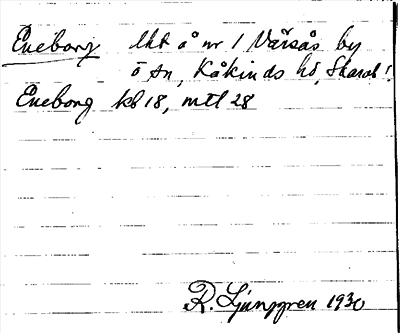 Eneborg lht å nr 1 Värsås by
ö sn, Kåkinds hd, Skarab l.
Eneborg kb 18, mtl 28
R. Ljunggren 1930